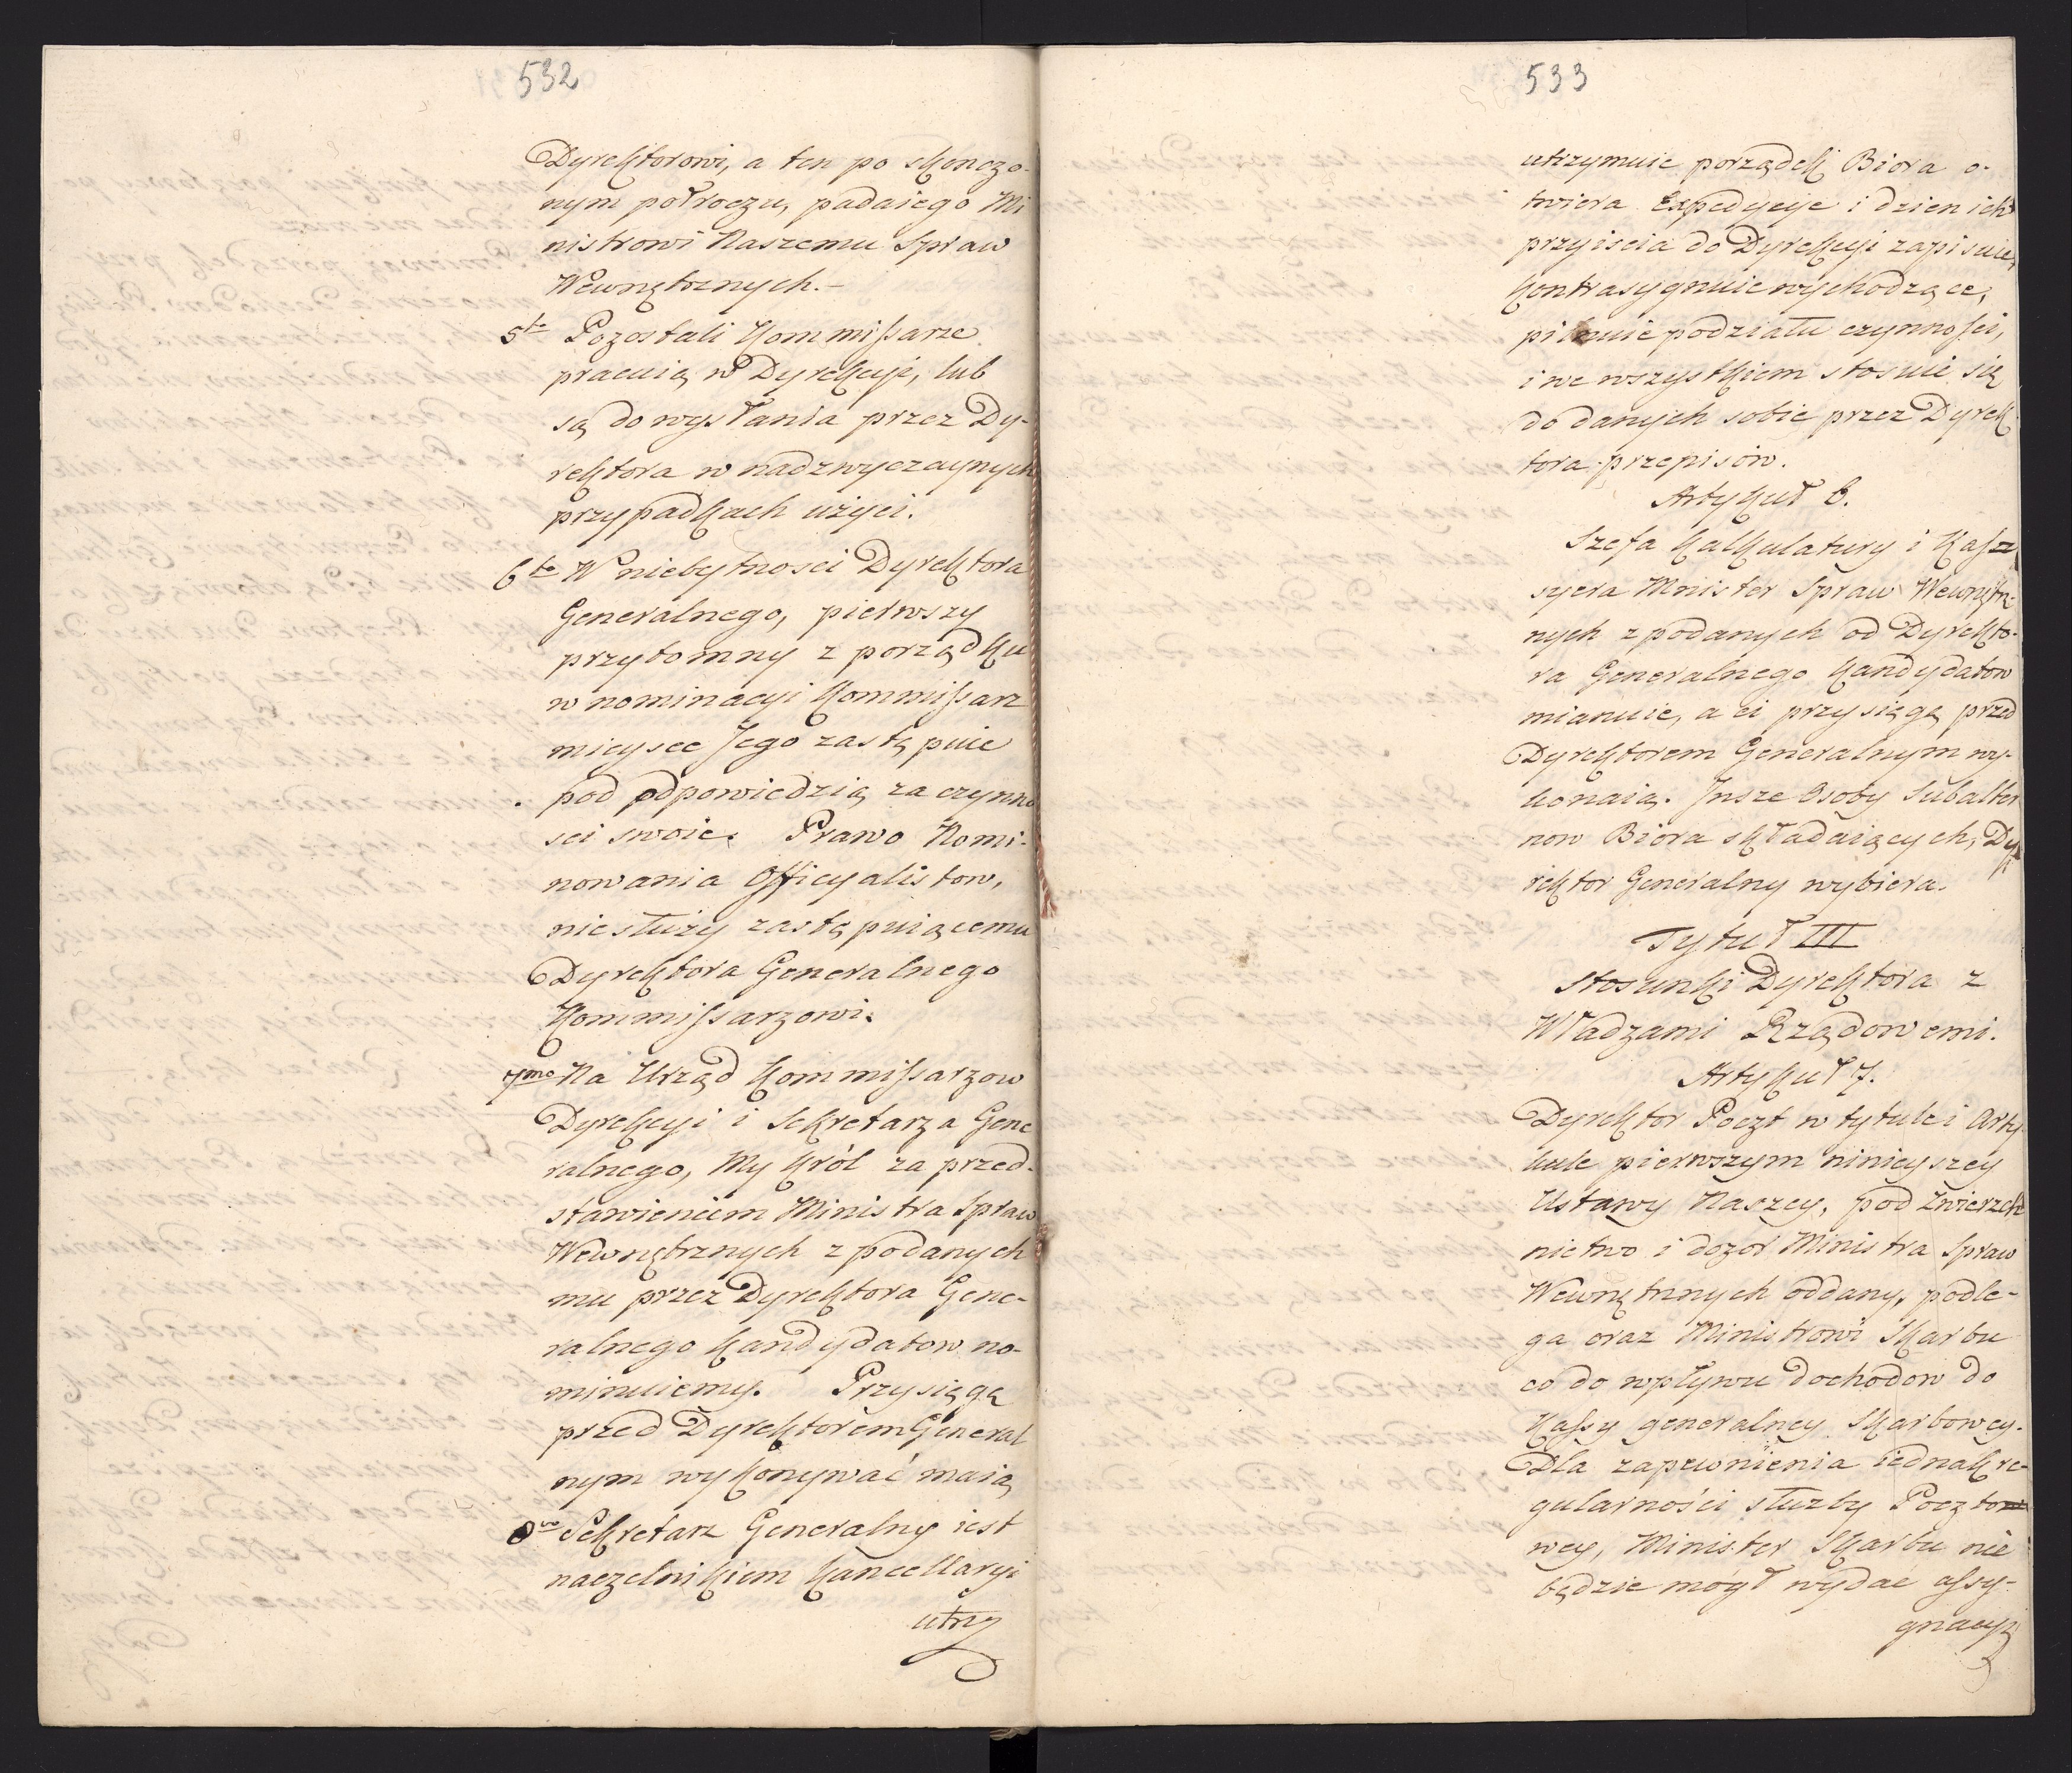 532
Dyrektorowi, a ten po skonczo-
nym półroczu, padaiego Mi
nistrowi Naszemu Spraw
Wewnętrznych.-
5to Pozostali Kommissarze
pracuią w Dyrekcyi, lub
są do wysłania przez Dy-
rektora w nadzwyczaynych
przypadkach użyci.
6to W niebytnosci Dyrektora
Generalnego, pierwszy
przytomny z porządku
w nominacyi Kommissarz
mieysce Jego zastępuie
pod odpowiedzią za czynno
sci swoie. Prawo Nomi-
nowania Officyalistow,
niesłuży zastępuiącemu
Dyrektora Generalnego
Kommissarzowi.
7mo Na Urząd Kommissarzow
Dyrekcyi i Sekretarza Gene
ralnego, My Król za przed-
stawieniem Ministra Spraw
Wewnętrznych z podanych
mu przez Dyrektora Gene-
ralnego Kandydatow no-
minuiemy. Przysięgę
przed Dyrektorem General
nym wykonywać maią
8vo Sekretarz Generalny iest
naczelnikiem Kancellaryi
utrz
533
utrzymuie porządek Biora o-
twiera Expedycye i dzien ich
przyiscia do Dyrekcyi zapisuie,
kontrasygnuie wychodzące,
pilnuie podziału czynności,
i we wszystkiem stosuie się
do danych sobie przez Dyrek
tora przepisów.
Artykuł 6.
Szefa Kalkulatury i Kass
syera Minister Spraw Wewnętrz-
nych z podanych od Dyrekto-
ra Generalnego Kandydatow
mianuie, a ci przysięgę przed
Dyrektorem Generalnym wy-
konaią. Insze Osoby Subalter
now Biora składaiących, Dy
rektor Generalny wybiera.
Tytuł III
Stosunki Dyrektora z
Władzami Rządowemi.
Artykuł 7.
Dyrektor Poczt w tytule i Arty-
kule pierwszym ninieyszey
Ustawy Naszey, pod Zwierzch
nictwo i dozor Ministra Spraw
Wewnętrznych oddany, podle-
ga oraz Ministrowi Skarbu
co do wpływu dochodow do
Kassy generalney Skarbowey.
Dla zapewnienia iednak re-
gularności służby Poczto
wey, Minister Skarbu nie
będzie mógł wydac assy-
gnacyi